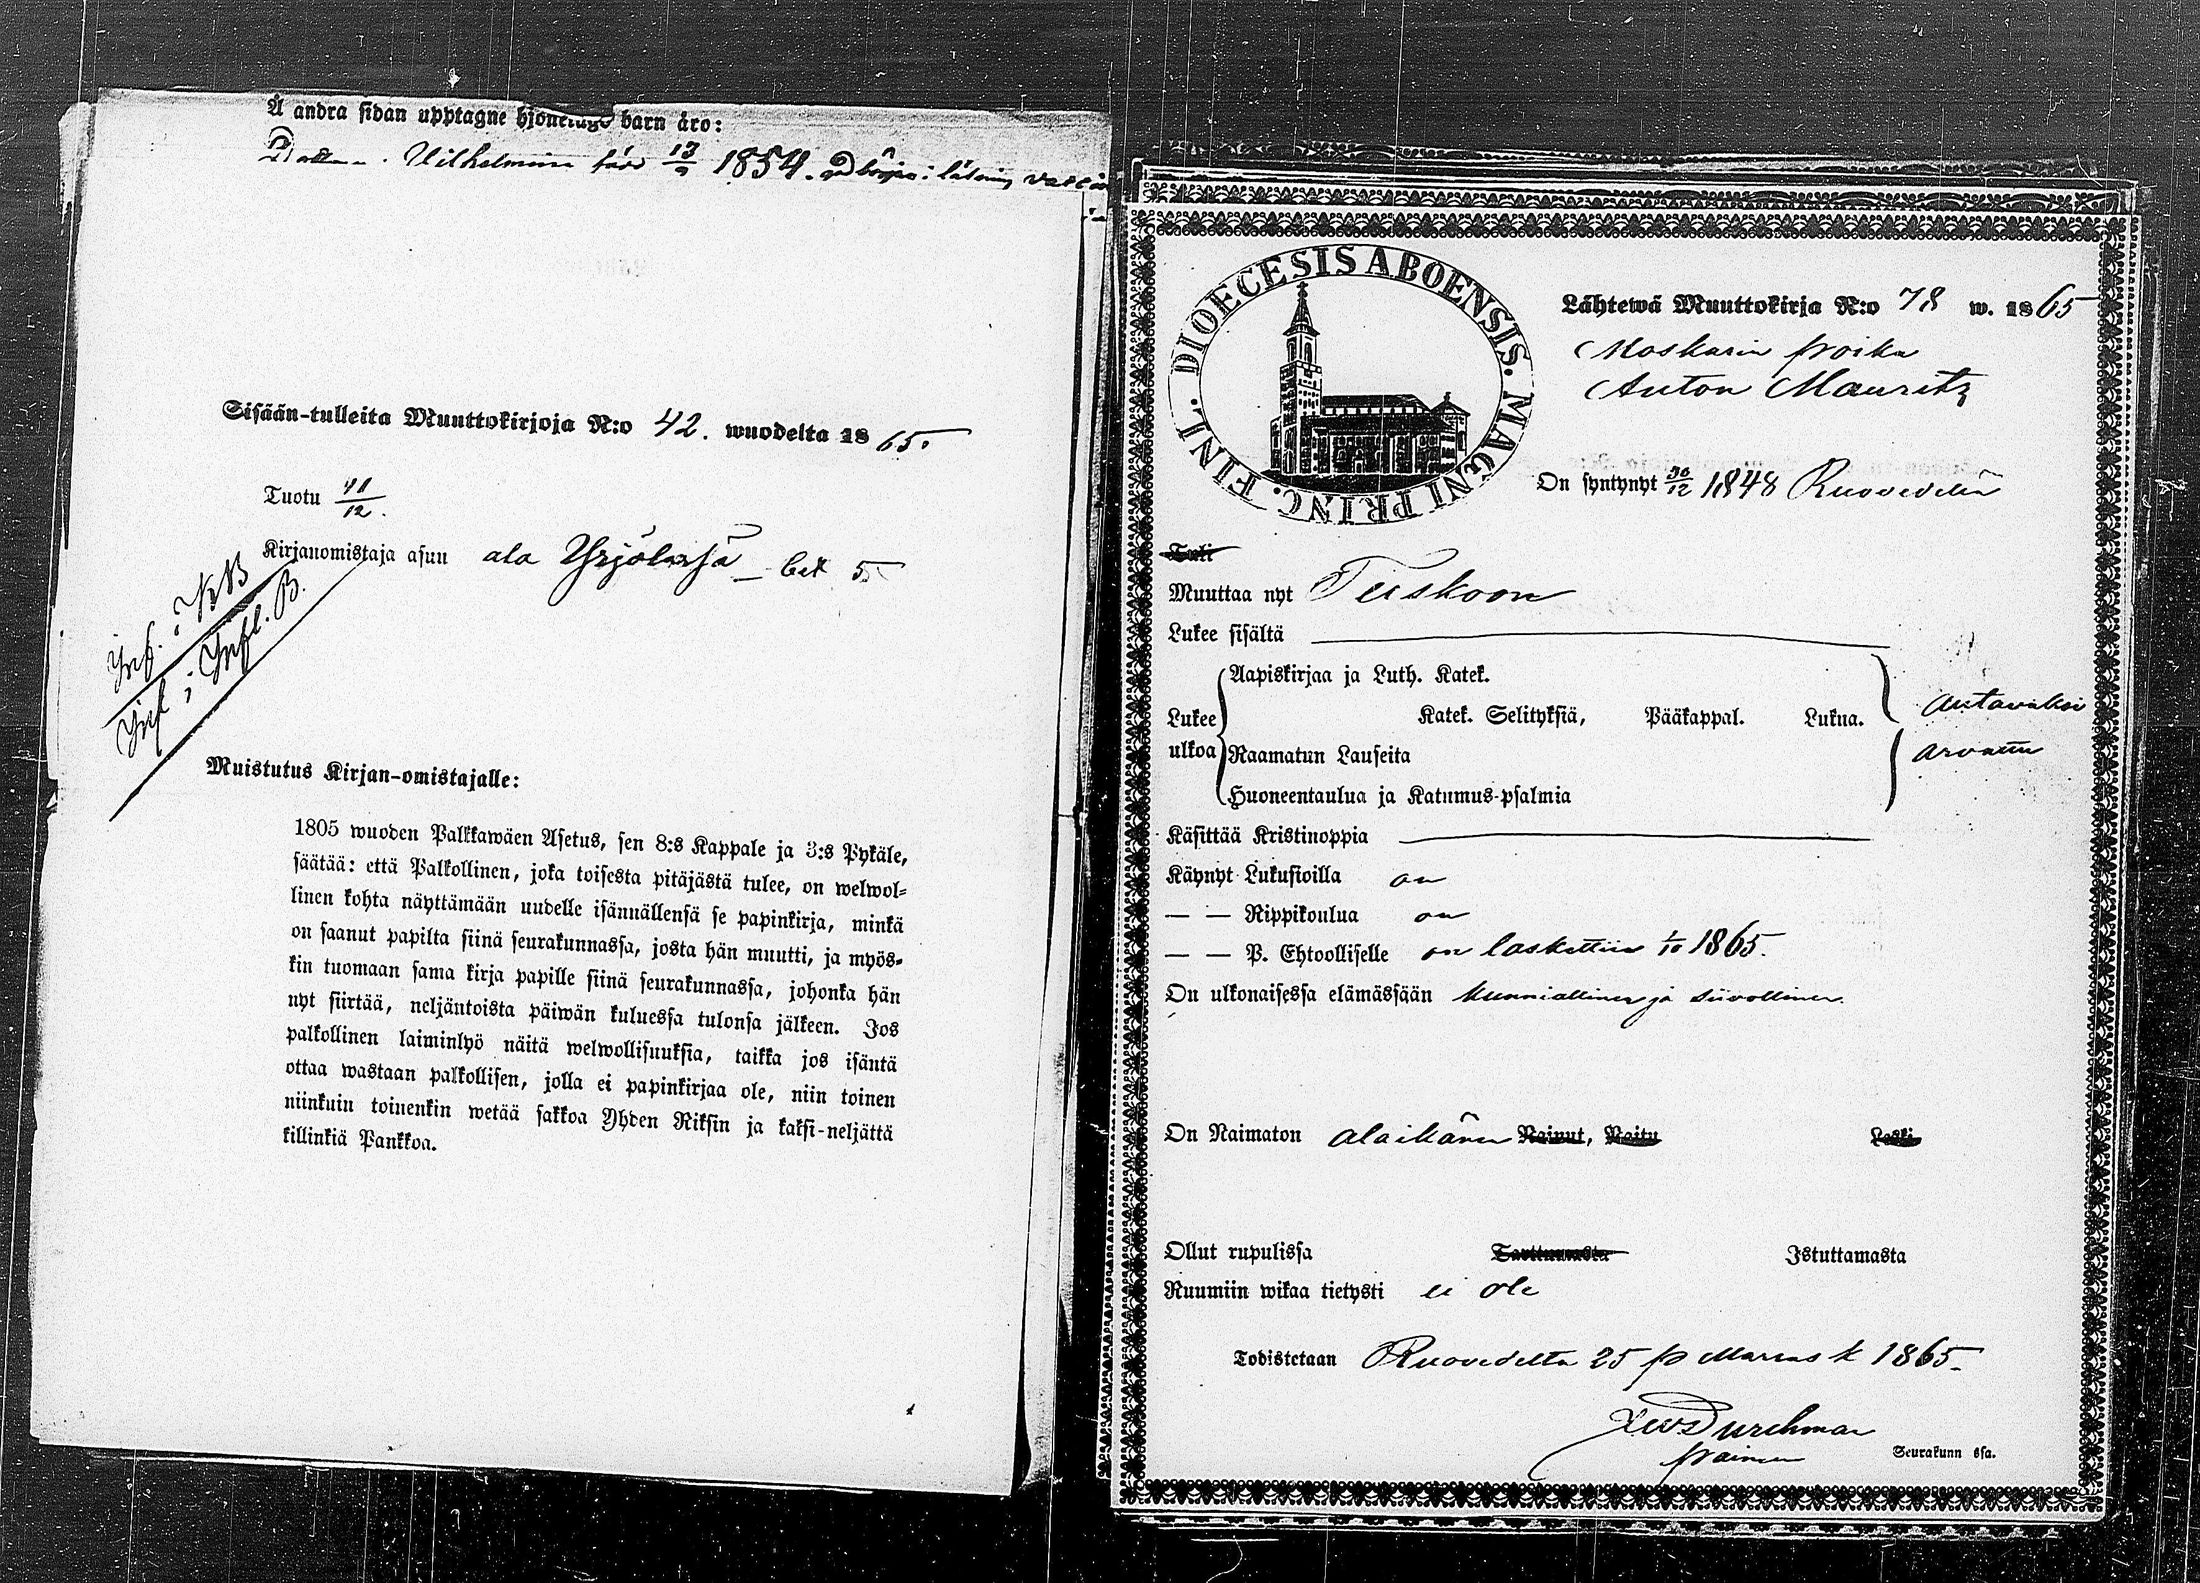 Å andra sidan upptagne hjonelags barn äro:
Wilhelmina född 13/9 1854.
Sisään-tulleita Muuttokirjoja N:o 42. wuodelta 1865.
Tuotu 41/12.
Kirjanomistaja asuu ala Yrjölässä
Inf. i KB
Inf i Infl. B.
Muistutus Kirjan-omistajalle:
1805 wuoden Palkkawäen Asetus, sen 8:s Kappale ja 3:s Pykäle,
säätää: että Palkollinen, joka toisesta pitäjästä tulee, on welwol-
linen kohta näyttämään uudelle isännällensä se papinkirja, minkä
on saanut papilta siinä seurakunnassa, josta hän muutti, ja myös-
kin tuomaan sama kirja papille siinä seurakunnassa, johonka hän
nyt siirtää, neljäntoista päiwän kuluessa tulonsa jälkeen. Jos
palkollinen laiminlyö näitä welwollisuuksia, taikka jos isäntä
ottaa wastaan palkollisen, jolla ei papinkirjaa ole, niin toinen
niinkuin toinenkin wetää sakkoa Yhden Riksin ja kaksi-neljättä
killinkiä Pankkoa.
DIOECESIS ABOENSIS. MAGNI PRINC. FINL.
Lähtewä Muuttokirja N:o 78 w. 1865
Moskarin poika
Anton Mauritz
On syntynyt 30/12 1848 Ruovedellä
Tuli
Muuttaa nyt Teiskoon
Lukee sisältä
Lukee ulkoa
Aapiskirjaa ja Luth. Katek.
Katek. Selityksiä, Pääkappal. Lukua.
Raamatun Lauseita
Huoneentaulua ja Katumus-psalmia
auttavaksi
arvattu
Käsittää Kristinoppia
Käynyt Lukusioilla on
— — Rippikoulua on
— — P. Ehtoolliselle on laskettiin 1/10 1865.
On ulkonaisessa elämässään kunniallinen ja siivollinen.
On Naimaton alaikänen Nainut, Naitu Leski
Ollut rupulissa Tarttumasta Istuttamasta
Ruumiin wikaa tietysti ei ole
Todistetaan Ruovedeltä 25 p Marras k 1865.
Durchman
Seurakunn ssa.